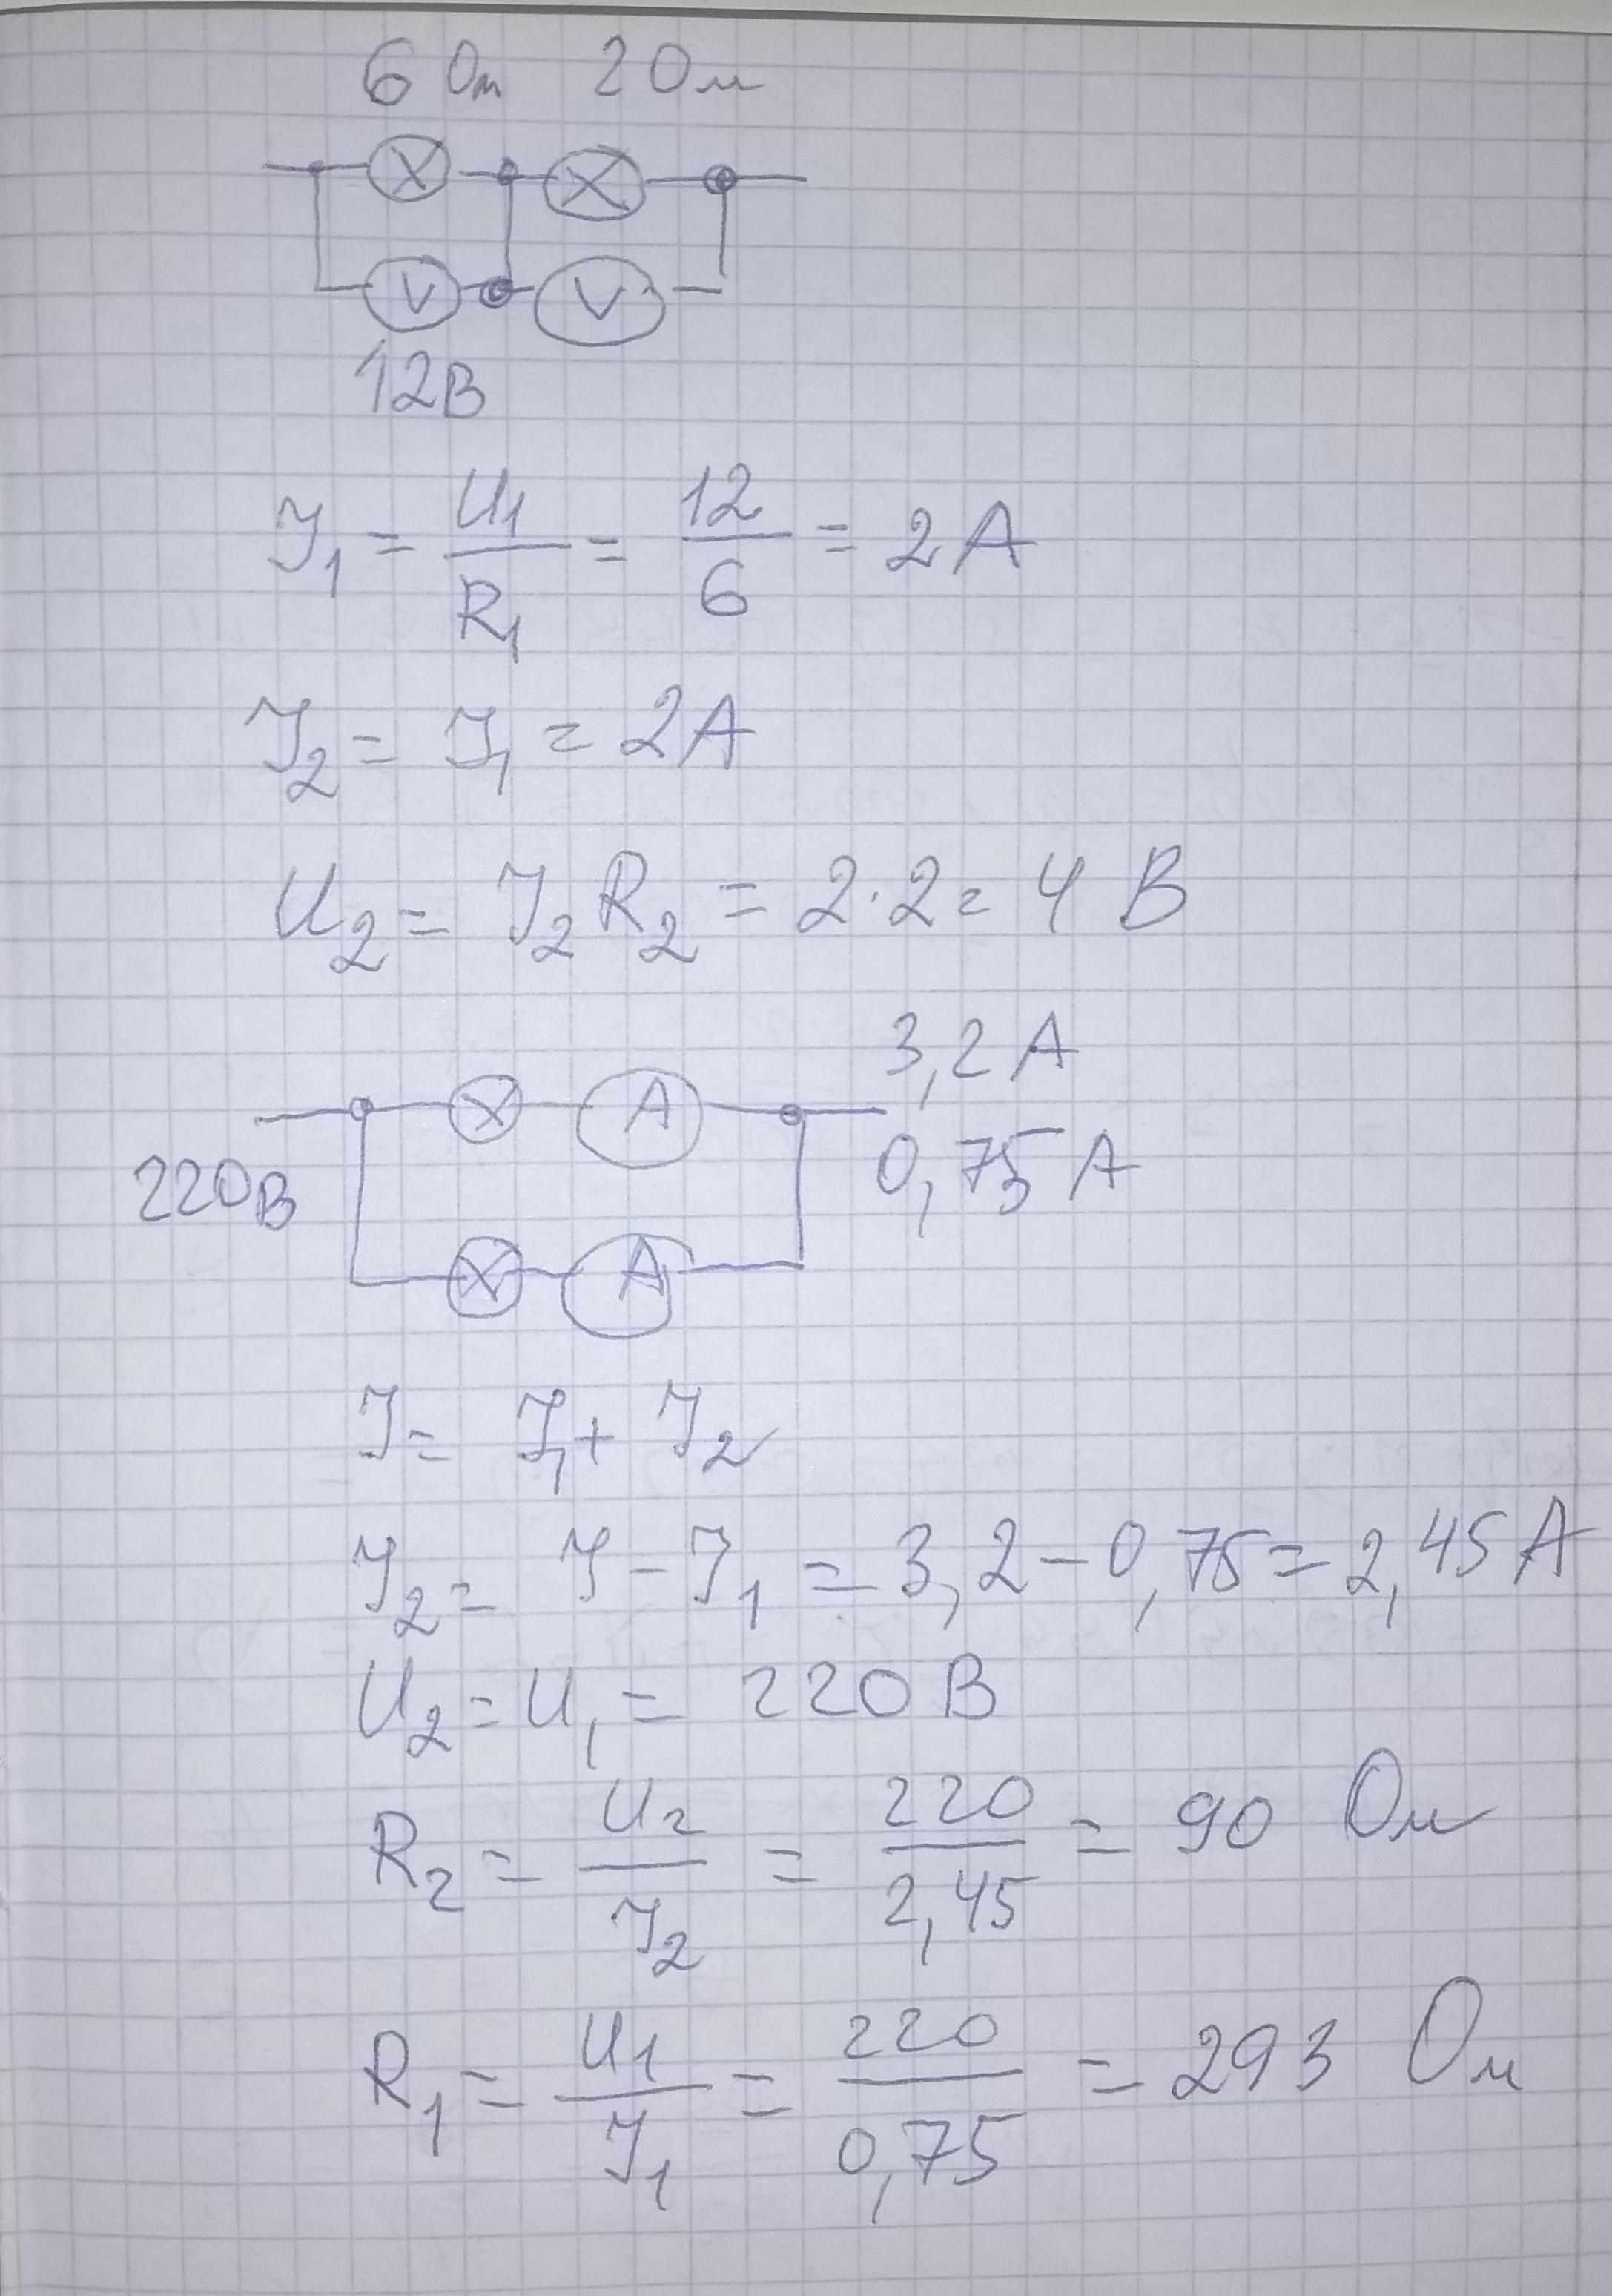 6 Ом 2 Ом
X X
V V
12В
I₁ = U₁/R₁ = 12/6 = 2 А
I₂ = I₁ = 2А
U₂ = I₂ R₂ = 2·2 = 4 В
3,2 А
X А
0,75 А
220В
X А
I = I₁ + I₂
I₂ = I - I₁ = 3,2 - 0,75 = 2,45 А
U₂ = U₁ = 220 В
R₂ = U₂/I₂ = 220/2,45 = 90 Ом
R₁ = U₁/I₁ = 220/0,75 = 293 Ом